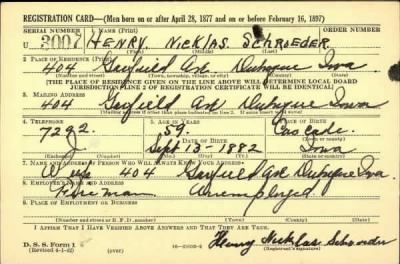 REGISTRATION CARD—(Men born on or after April 28, 1877 and on or before February 16, 1897)
SERIAL NUMBER 1. NAME (Print) ORDER NUMBER
U 3007 HENRY NICKLAS SCHROEDER
(First) (Middle) (Last)
2. PLACE OF RESIDENCE (Print)
404 Garfield Ave Dubuque Iowa
(Number and street) (Town, township, village, or city) (County) (State)
[THE PLACE OF RESIDENCE GIVEN ON THE LINE ABOVE WILL DETERMINE LOCAL BOARD
JURISDICTION; LINE 2 OF REGISTRATION CERTIFICATE WILL BE IDENTICAL]
3. MAILING ADDRESS
404 Garfield Ave Dubuque Iowa
[Mailing address if other than place indicated on line 2. If same insert word same]
4. TELEPHONE 5. AGE IN YEARS 6. PLACE OF BIRTH
7292 59 Cascade
DATE OF BIRTH (Town or county)
J Sept 13 - 1882 Iowa
(Exchange) (Number) (Mo.) (Day) (Yr.) (State or country)
7. NAME AND ADDRESS OF PERSON WHO WILL ALWAYS KNOW YOUR ADDRESS
Wife 404 Garfield Ave Dubuque Iowa
8. EMPLOYER'S NAME AND ADDRESS
Fireman Unemployed
9. PLACE OF EMPLOYMENT OR BUSINESS
(Number and street or R. F. D. number) (Town) (County) (State)
I AFFIRM THAT I HAVE VERIFIED ABOVE ANSWERS AND THAT THEY ARE TRUE.
D. S. S. Form 1
(Revised 4-1-42) Henry Nicklas Schroeder